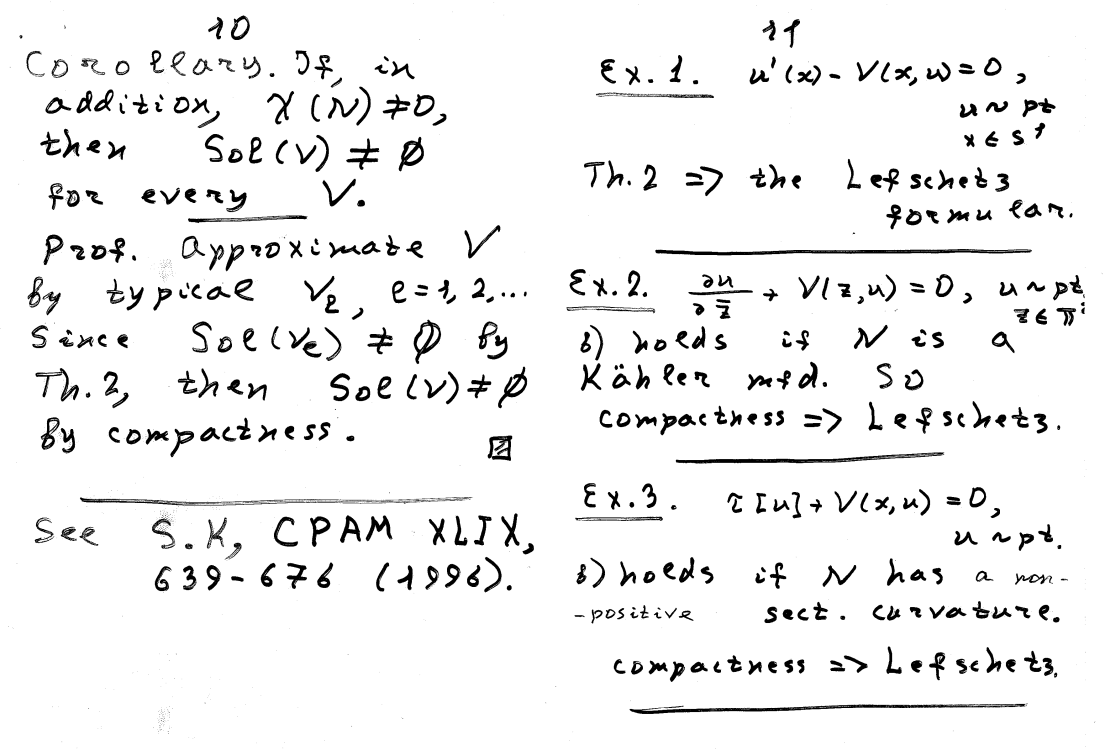 10
Corollary. If, in
addition, χ(N) ≠ 0,
then Sol(V) ≠ ∅
for every V.
Prof. Approximate V
by typical V_ℓ, ℓ=1, 2,...
Since Sol(V_ℓ) ≠ ∅ by
Th. 2, then Sol(V) ≠ ∅
by compactness.
See S.K, CPAM XLIX,
639-676 (1996).
11
Ex. 1. u'(x) - V(x,u) = 0,
u ~ pt
x ∈ S¹
Th. 2 => the Lefschetz
formular.
Ex. 2. ∂u/∂z̄ + V(z,u) = 0, u ~ pt,
z ∈ 𝕋²
b) holds if N is a
Kähler mfd. So
compactness => Lefschetz.
Ex. 3. τ[u] + V(x,u) = 0,
u ~ pt.
b) holds if N has a non-
-positive sect. curvature.
compactness => Lefschetz.